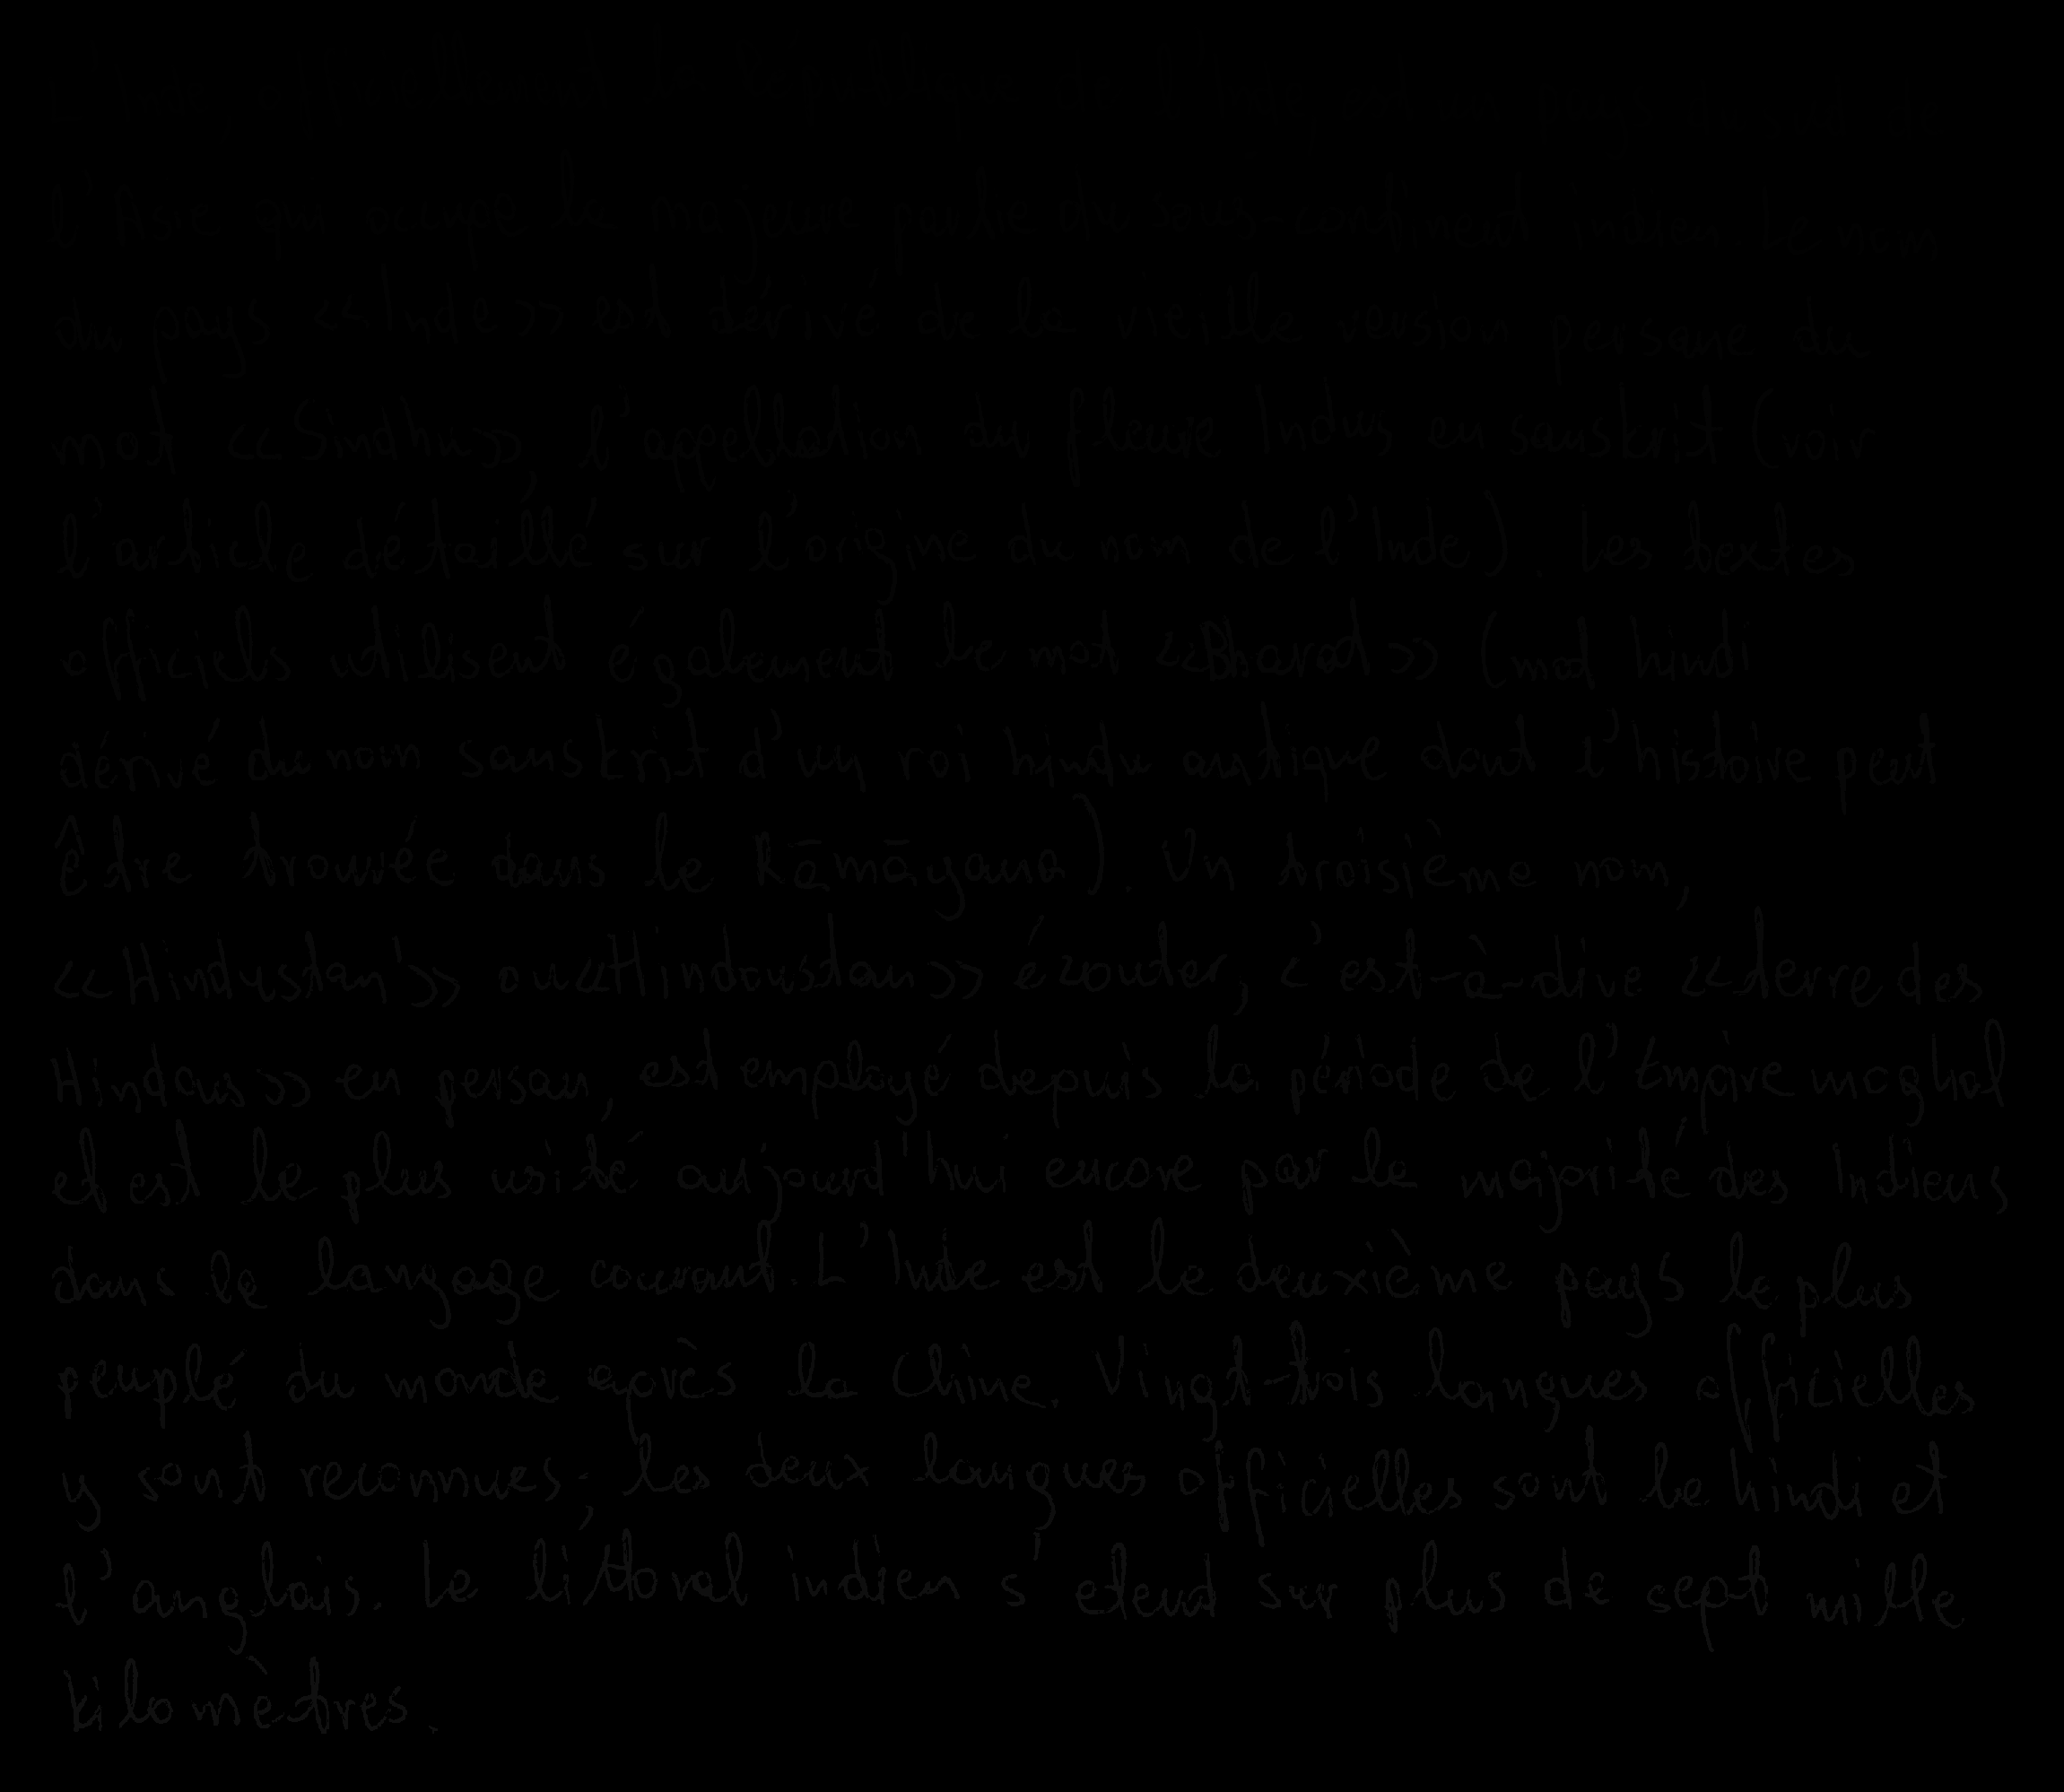 l'Asie qui occupe la majeure partie du sous-continent indien. Le nom
du pays «Inde» est dérivé de la vieille version persane du
mot «Sindhu», l'appellation du fleuve Indus en sanskrit (voir
l'article détaillé sur l'origine du nom de l'Inde). Les textes
officiels utilisent également le mot «Bharat» (mot hindi
dérivé du nom sanskrit d'un roi hindu antique dont l'histoire peut
être trouvée dans le Rāmāyana). Un troisième nom,
«Hindustan» ou «Hindoustan» écouter, c'est-à-dire «terre des
Hindous» en persan, est employé depuis la période de l'Empire moghol
et est le plus usité aujourd'hui encore par la majorité des Indiens
dans le langage courant. L'Inde est le deuxième pays le plus
peuplé du monde après la Chine. Vingt-trois langues officielles
y sont reconnues; les deux langues officielles sont le hindi et
l'anglais. Le littoral indien s'étend sur plus de sept mille
kilomètres.